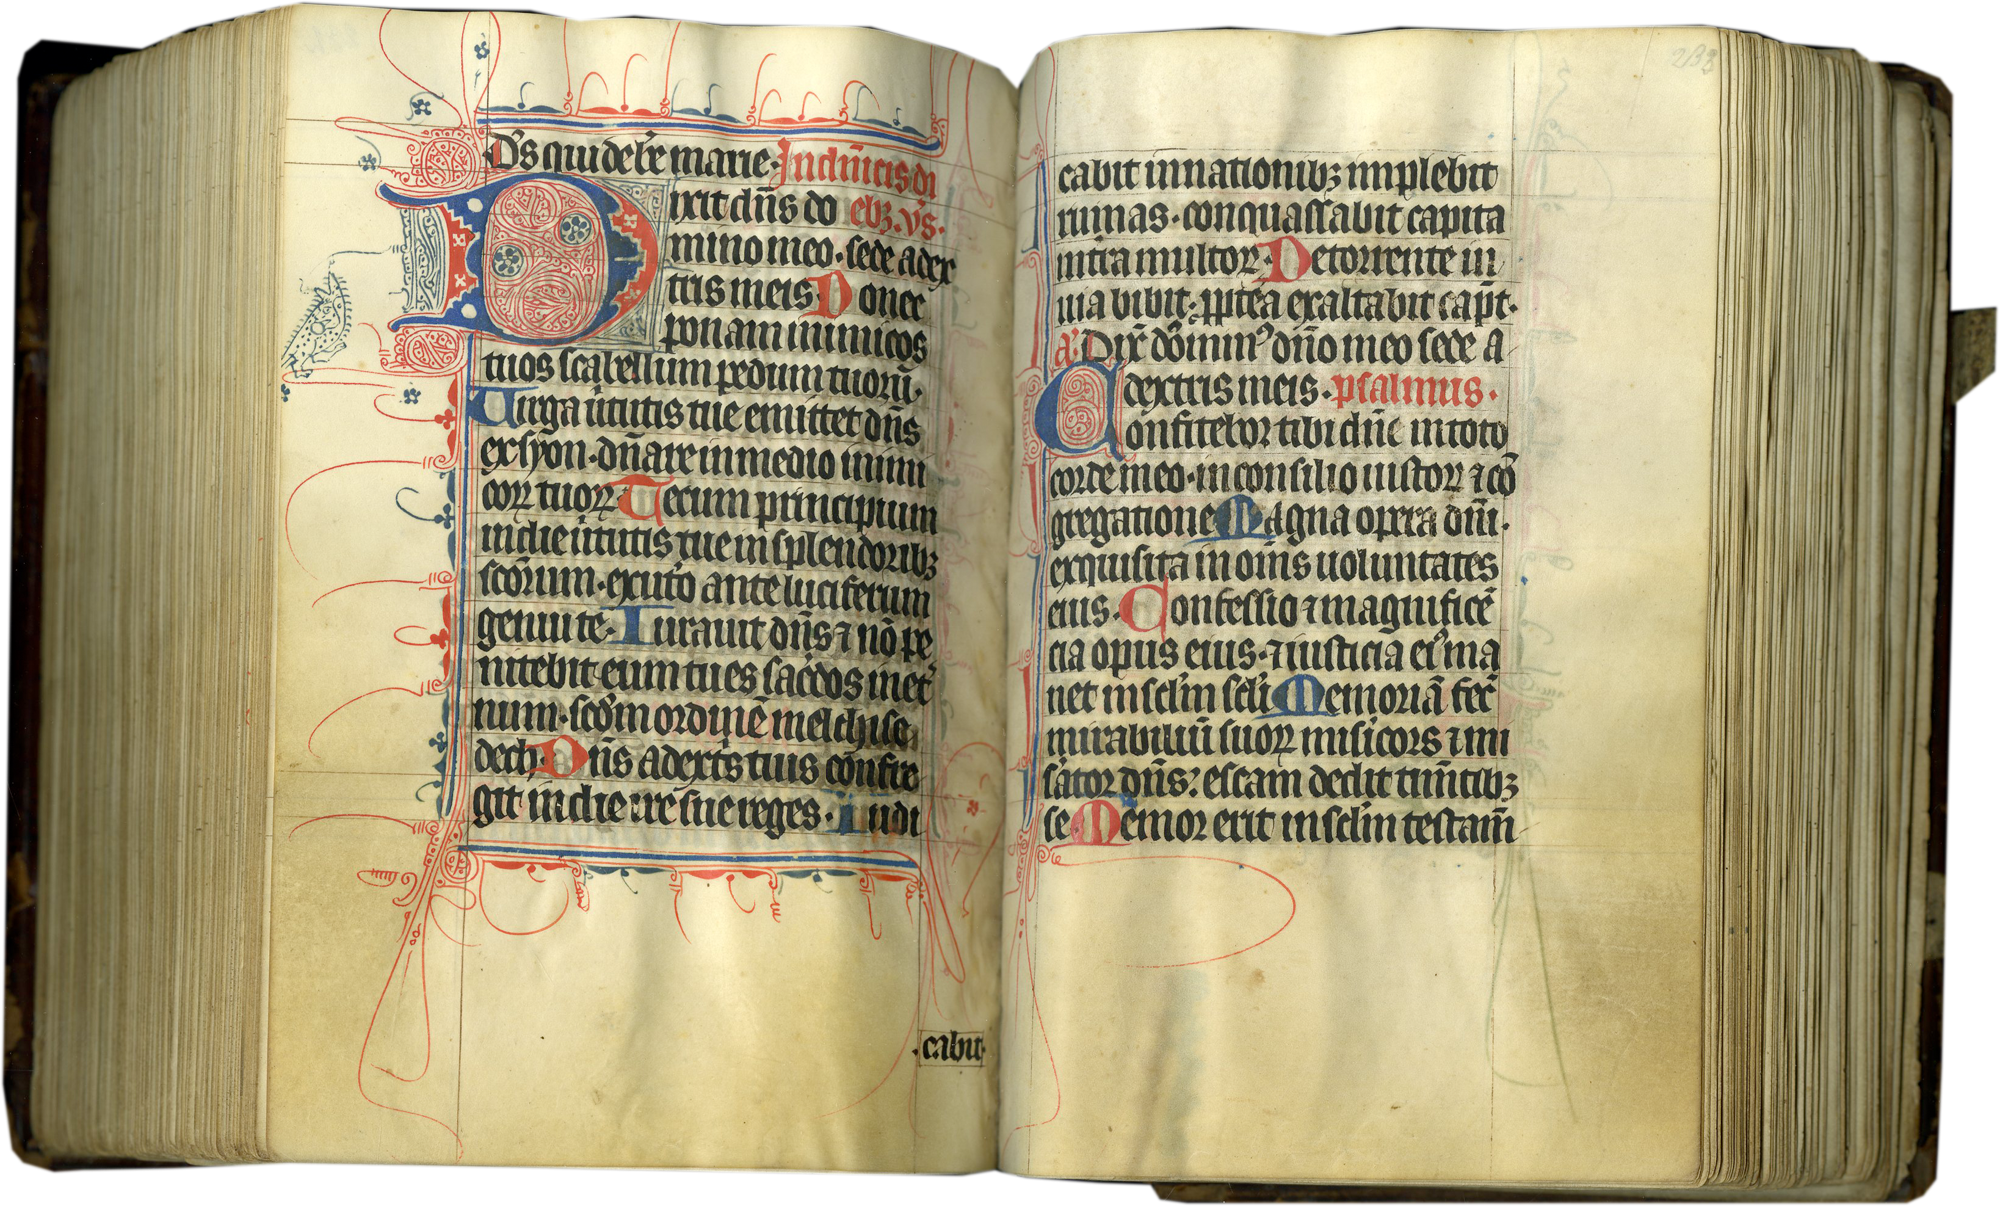 Ds qui de bte marie. In dnicis di
ebz. vs.
Dixit dns do
mino meo. sede a dex
tris meis Donec
ponam inimicos
tuos scabellum pedum tuorū.
Uirga ūtutis tue emittet dns
ex syon. dnare in medio inimi
coꝝ tuoꝝ Tecum principium
in die ūtutis tue in splendoribꝫ
scōrum. ex uto ante luciferum
genui te. Iurauit dns ⁊ nō pe
nitebit eum tu es sacdos in et
num. scdm ordinē melchise
dech. Dns a dextis tuis confre
git in die ire sue reges. Iudi
.cabit.
233
cabit in nationibꝫ implebit
ruinas. conquassabit capita
in tra multoꝝ. De torrente in
uia bibit. ꝓptea exaltabit capt.
a. Dix domin⁹ dno meo sede a
dextris meis. psalmus.
Confitebor tibi dne in toto
corde meo. in consilio iustoꝝ ⁊ cō
gregatione Magna opera dni.
exquisita in oms uoluntates
eius. Confessio ⁊ magnificē
cia opus eius. ⁊ iusticia ei⁹ ma
net in sclm scli Memoriā fec
mirabiliū suoꝝ misicors ⁊ mi
sator dns. escam dedit timtibꝫ
se Memor erit in sclm testam̄